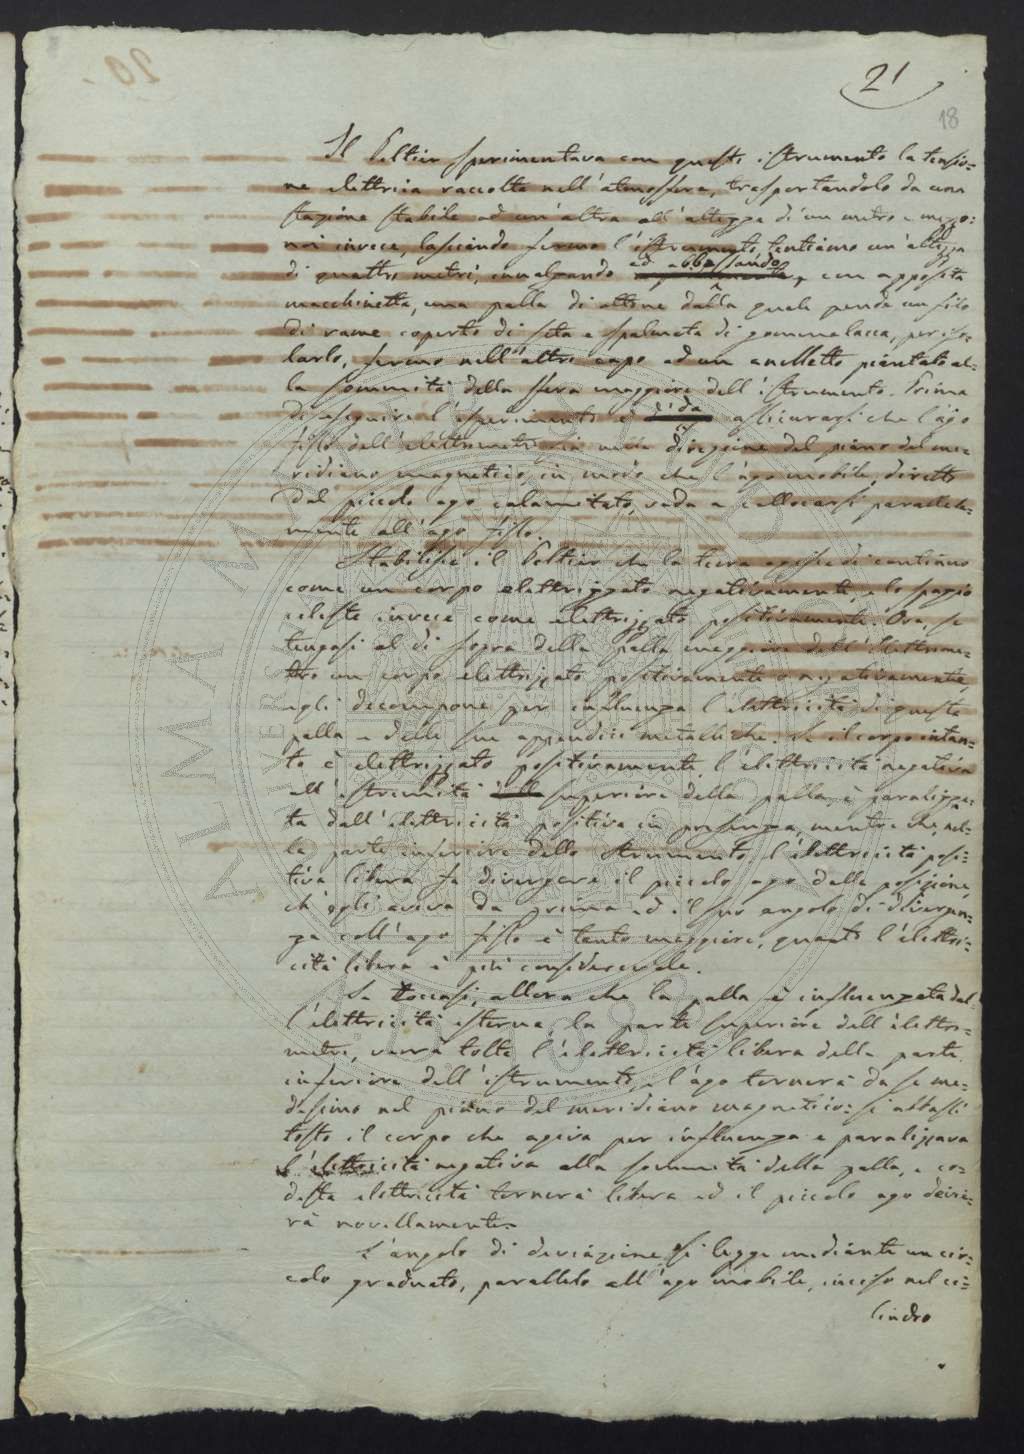 20
21
18
Il Peltier sperimentava con questo istrumento la tensio=
ne elettrica raccolta nell'atmosfera, trasportandolo da una
stazione stabile ad un'altra all'altezza di un metro e mezzo:
noi invece, lasciando fermo l'istrumento, tentiamo un'altezza
di quattro metri, innalzando ed abbassando, con apposita
macchinetta, una palla di ottone dalla quale pende un filo
di rame coperto di seta e spalmato di gommalacca, per iso=
larlo, fermo nell'altro capo ad un anelletto piantato al=
la sommità della sfera maggiore dell'istrumento. Prima
di eseguire l'esperimento è da assicurarsi che l'ago
fisso dell'elettrometro sia nella direzione del piano del me=
ridiano magnetico, in modo che l'ago mobile, diretto
dal piccolo ago calamitato, vada a collocarsi parallela=
mente all'ago fisso.
Stabilisce il Peltier che la terra agisce di continuo
come un corpo elettrizzato negativamente, e lo spazio
celeste invece come elettrizzato positivamente. Ora, se
tengasi al di sopra della palla maggiore dell'Elettrome=
tro un corpo elettrizzato positivamente o negativamente,
egli decompone per influenza l'elettricità di questa
palla e delle sue appendici metalliche. Se il corpo intan=
to è elettrizzato positivamente, l'elettricità negativa
all'estremità superiore della palla, è paralizza=
ta dall'elettricità positiva in presenza, mentre che, nel=
la parte inferiore dello strumento, l'elettricità posi=
tiva libera fa divergere il piccolo ago dalla posizione,
ch'egli aveva da prima ed il suo angolo di divergen=
za coll'ago fisso è tanto maggiore, quanto l'elettri=
cità libera è più considerevole.
Se toccasi, allora che la palla è influenzata dal=
l'elettricità esterna, la parte superiore dell'elettro=
metro, verrà tolta l'elettricità libera della parte
inferiore dell'istrumento, e l'ago tornerà da se me=
desimo nel piano del meridiano magnetico: si abbassi
tosto il corpo che agiva per influenza e paralizzava
l'elettricità negativa alla sommità della palla, e co=
desta elettricità tornerà libera ed il piccolo ago devie=
rà novellamente.
L'angolo di deviazione si legge mediante un cir=
colo graduato, parallelo all'ago mobile, inciso nel ci=
lindro
ALMA MATER STUDIORUM
A.D. 1088